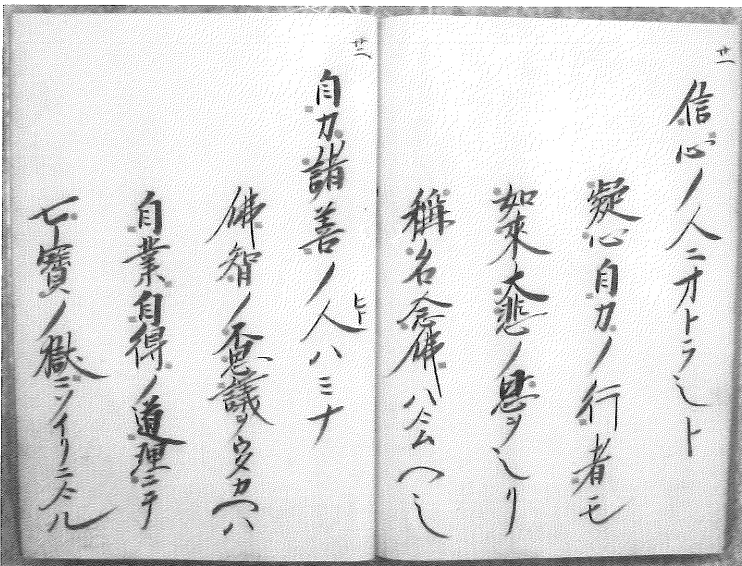 廿一
信心ノ人ニオトラシト
疑心自力ノ行者モ
如來大悲ノ恩ヲシリ
稱名念佛ハケムヘシ
廿二
自力諸善ノ人ハミナ
ヒト
佛智ノ不思議ヲウタカヘハ
自業自得ノ道理ニテ
七寶ノ獄ニソイリニケル